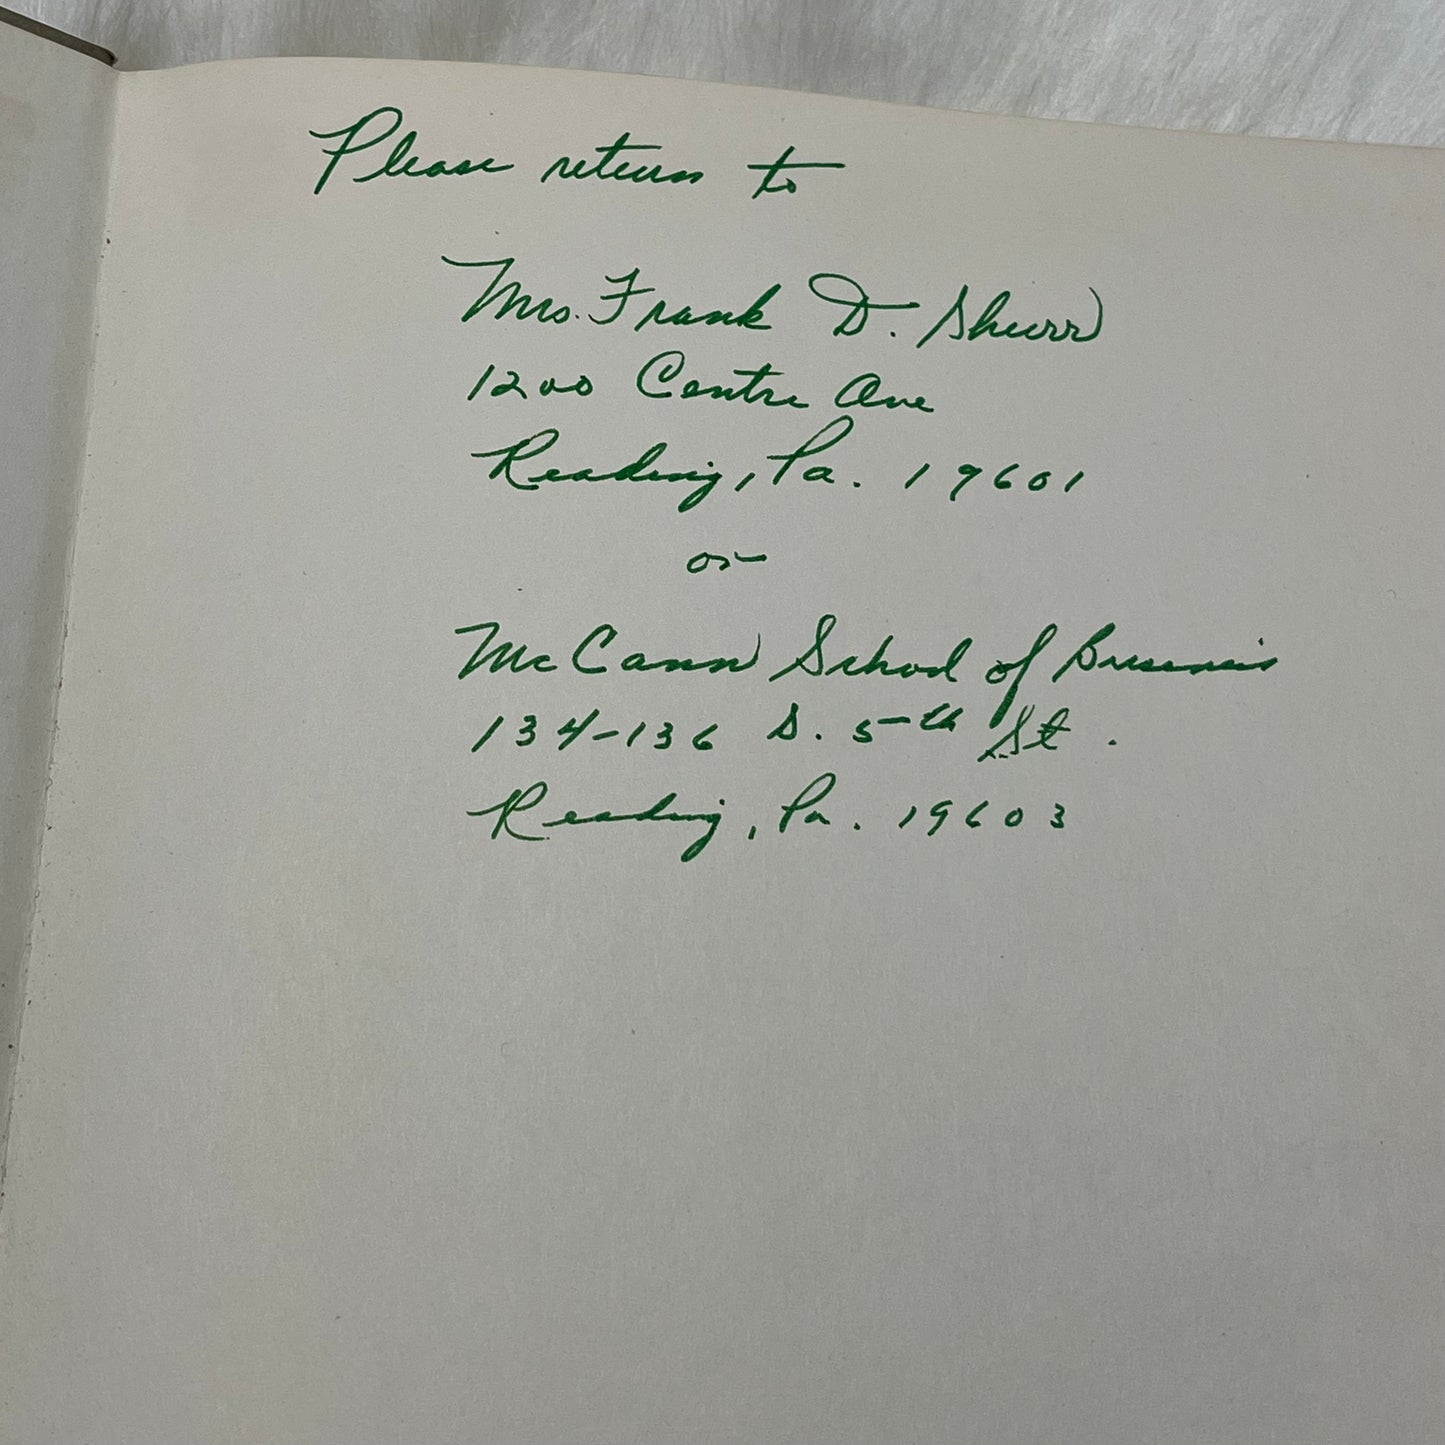 Please return to
Mrs. Frank D. Shurr
1200 Centre Ave
Reading, Pa. 19601
or
McCann School of Business
134-136 S. 5th St.
Reading, Pa. 19603